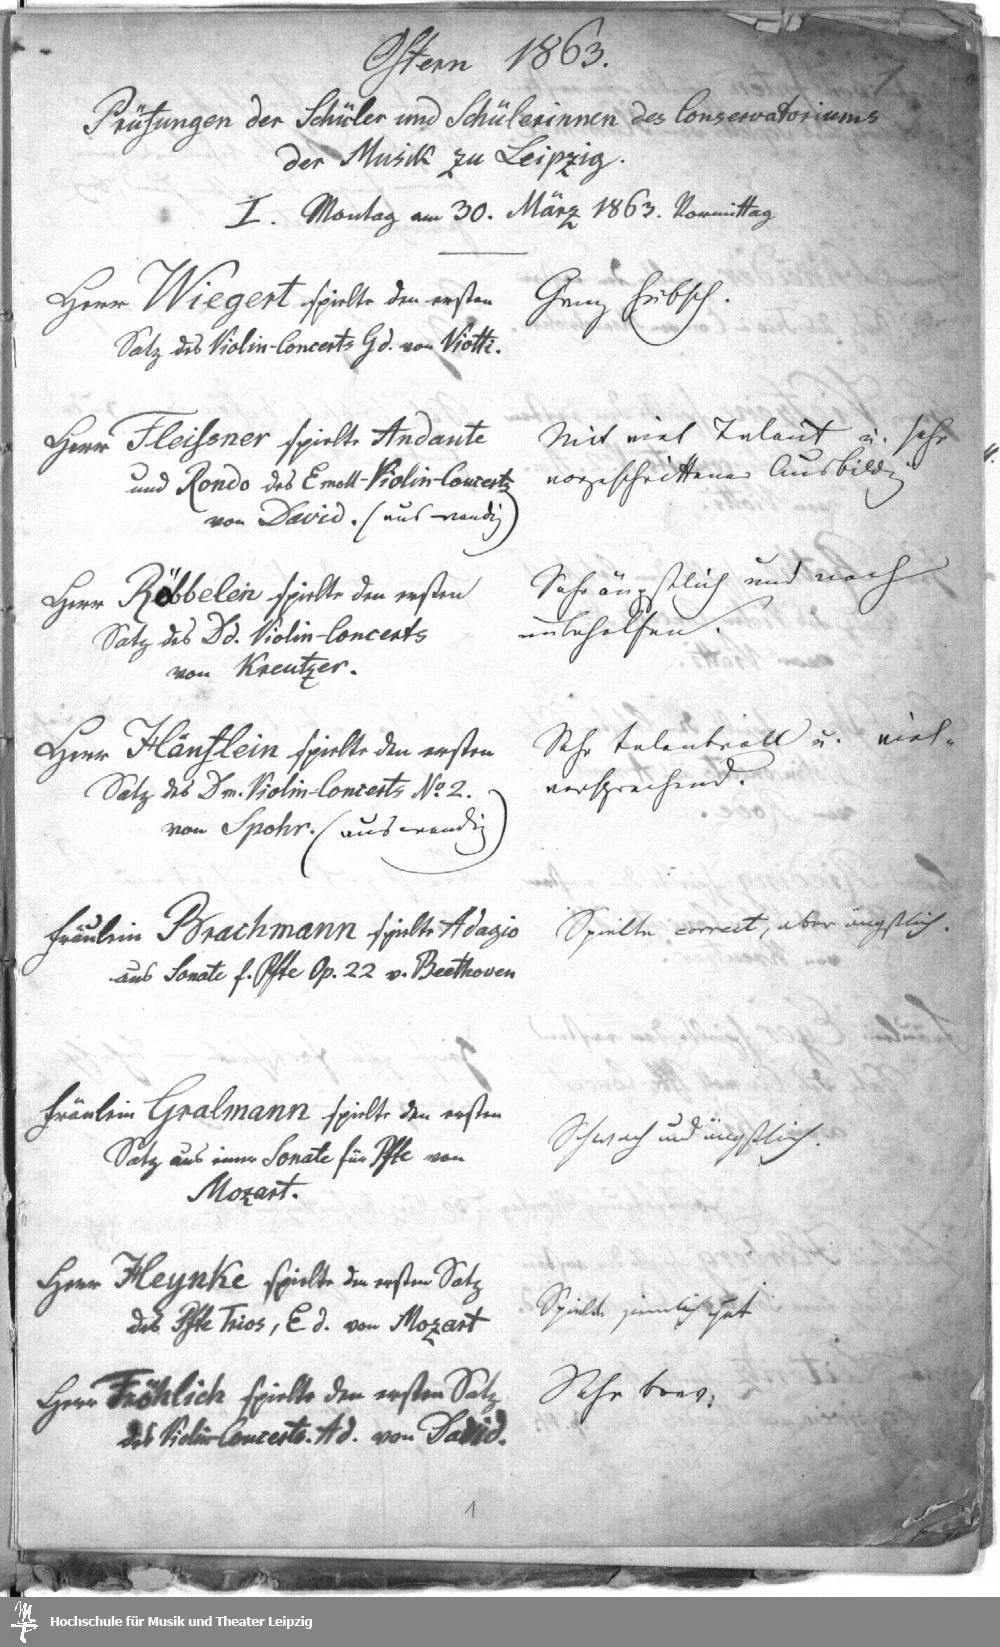 Ostern 1863.
1
Prüfungen der Schüler und Schülerinnen des Conservatoriums
der Musik zu Leipzig.
I. Montag am 30. März 1863. Vormittag
Herr Wiegert spielte den ersten
Satz des Violin-Concerts Gd. von Viotti.
Ganz hübsch.
Herr Fleissner spielte Andante
und Rondo des Emoll-Violin-Concerts
von David. (auswendig)
Mit viel Talent u. sehr
vorgeschrittener Ausbildg
Herr Röbbelen spielte den ersten
Satz des Dd. Violin-Concerts
von Kreutzer.
Sehr ängstlich und noch
unbeholfen.
Herr Hänflein spielte den ersten
Satz des Dm. Violin-Concerts No. 2.
von Spohr. (auswendig)
Sehr talentvoll u. viel-
versprechend.
Fräulein Brachmann spielte Adagio
aus Sonate f. Pfte Op. 22 v. Beethoven
Spielte correct, aber ängstlich.
Fräulein Gralmann spielte den ersten
Satz aus einer Sonate für Pfte von
Mozart.
Schwach und ängstlich.
Herr Heynke spielte den ersten Satz
des Pfte Trios, E d. von Mozart
Spielte ziemlich gut
Herr Fröhlich spielte den ersten Satz
des Violin-Concerts. Ad. von David.
Sehr brav.
1
Hochschule für Musik und Theater Leipzig